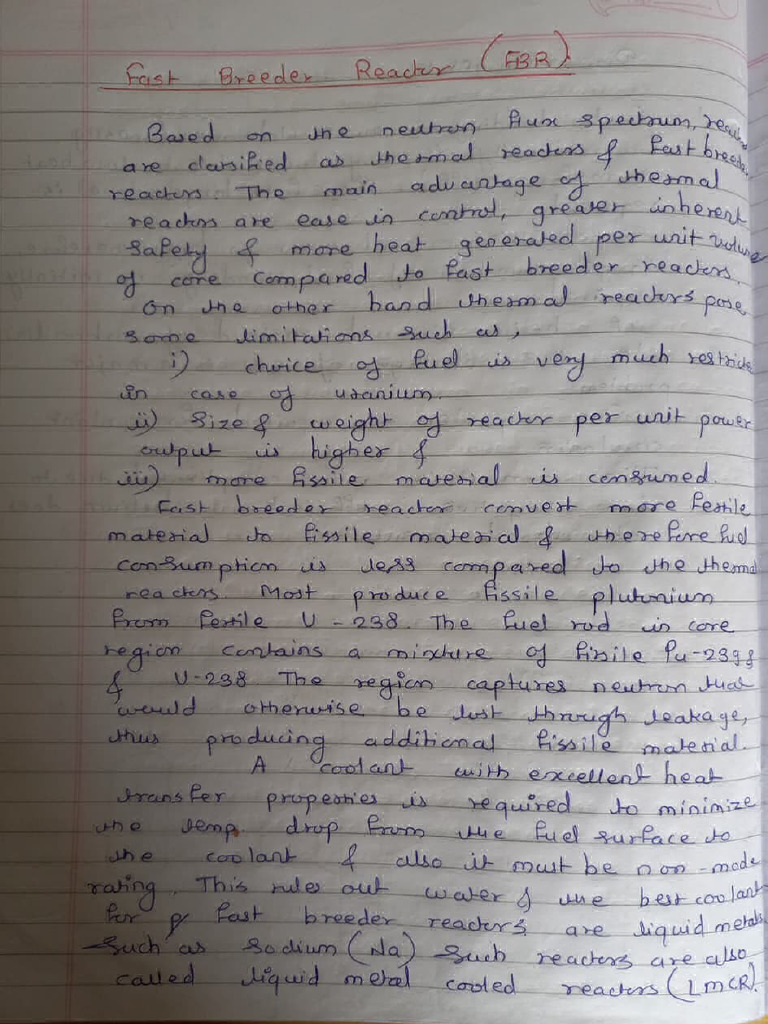 Fast Breeder Reactor (FBR)
Based on the neutron flux spectrum,
are classified as thermal reactors & fast breede
reactors. The main advantage of thermal
reactors are ease in control, greater inherent
safety & more heat generated per unit volume
of core compared to fast breeder reactors.
On the other hand thermal reactors pose
some limitations such as,
i) choice of fuel is very much restricte
in case of uranium.
ii) Size & weight of reactor per unit power
output is higher &
iii) more fissile material is consumed.
Fast breeder reactor convert more fertile
material to fissile material & therefore fuel
consumption is less compared to the thermal
reactors. Most produce fissile plutonium
from fertile U-238. The fuel rod in core
region contains a mixture of fissile Pu-239
& U-238 The region captures neutron that
would otherwise be lost through leakage,
thus producing additional fissile material.
A coolant with excellent heat
transfer properties is required to minimize
the temp. drop from the fuel surface to
the coolant & also it must be non-mode
rating. This rules out water & the best coolant
for fast breeder reactors are liquid metals
such as sodium (Na) Such reactors are also
called liquid metal cooled reactors (LMCR).